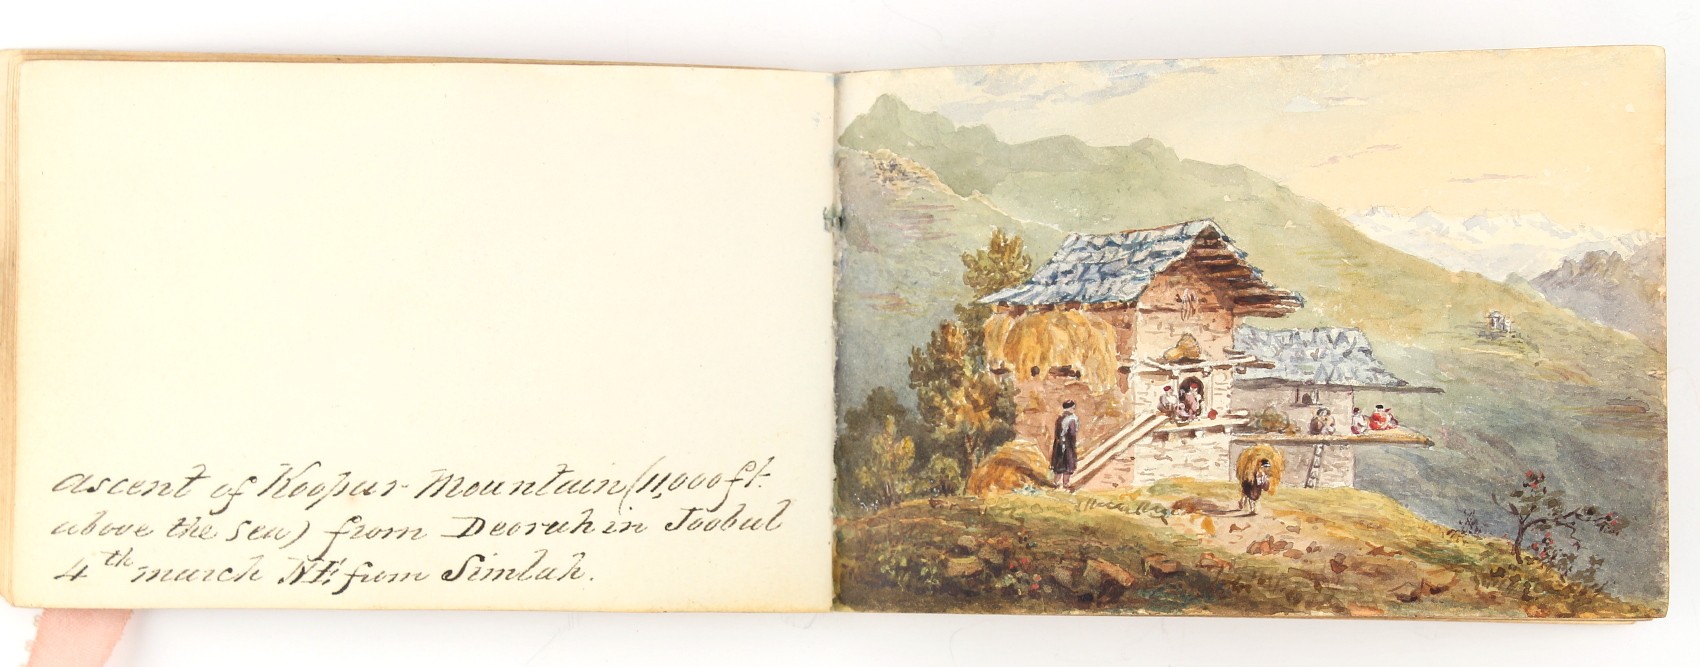 ascent of Koopur Mountain (11,000 ft.
above the Sea) from Deorah in Joobul
4th march NE from Simlah.